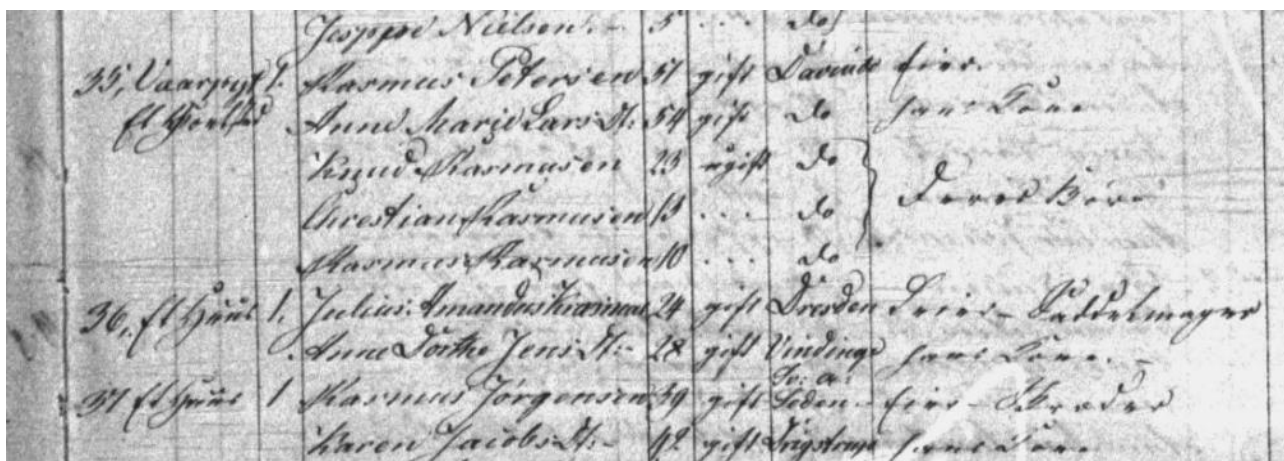 Jesper Nielsen 5 ... do
35, Vaarpyt 1. Rasmus Petersen 51 gift Davinde Eier
Et Anne Marie Lars Dt: 54 gift do hans Kone
Knud Rasmusen 23 ugift do
Chrestian Rasmusen 13 ... do Deres Børn
Rasmus Rasmusen 10 ... do
36, Et Huus 1. Julius Amandus 24 gift Dresden Leier - Saddelmager
Anne Dorthe Jens Dt: - 28 gift Vindinge hans Kone. -
37 Et Huus 1 Rasmus Jørgensen 39 gift Seden - Eier - Skreder
Karen Jacobs Dt: - 42 gift hans Kone